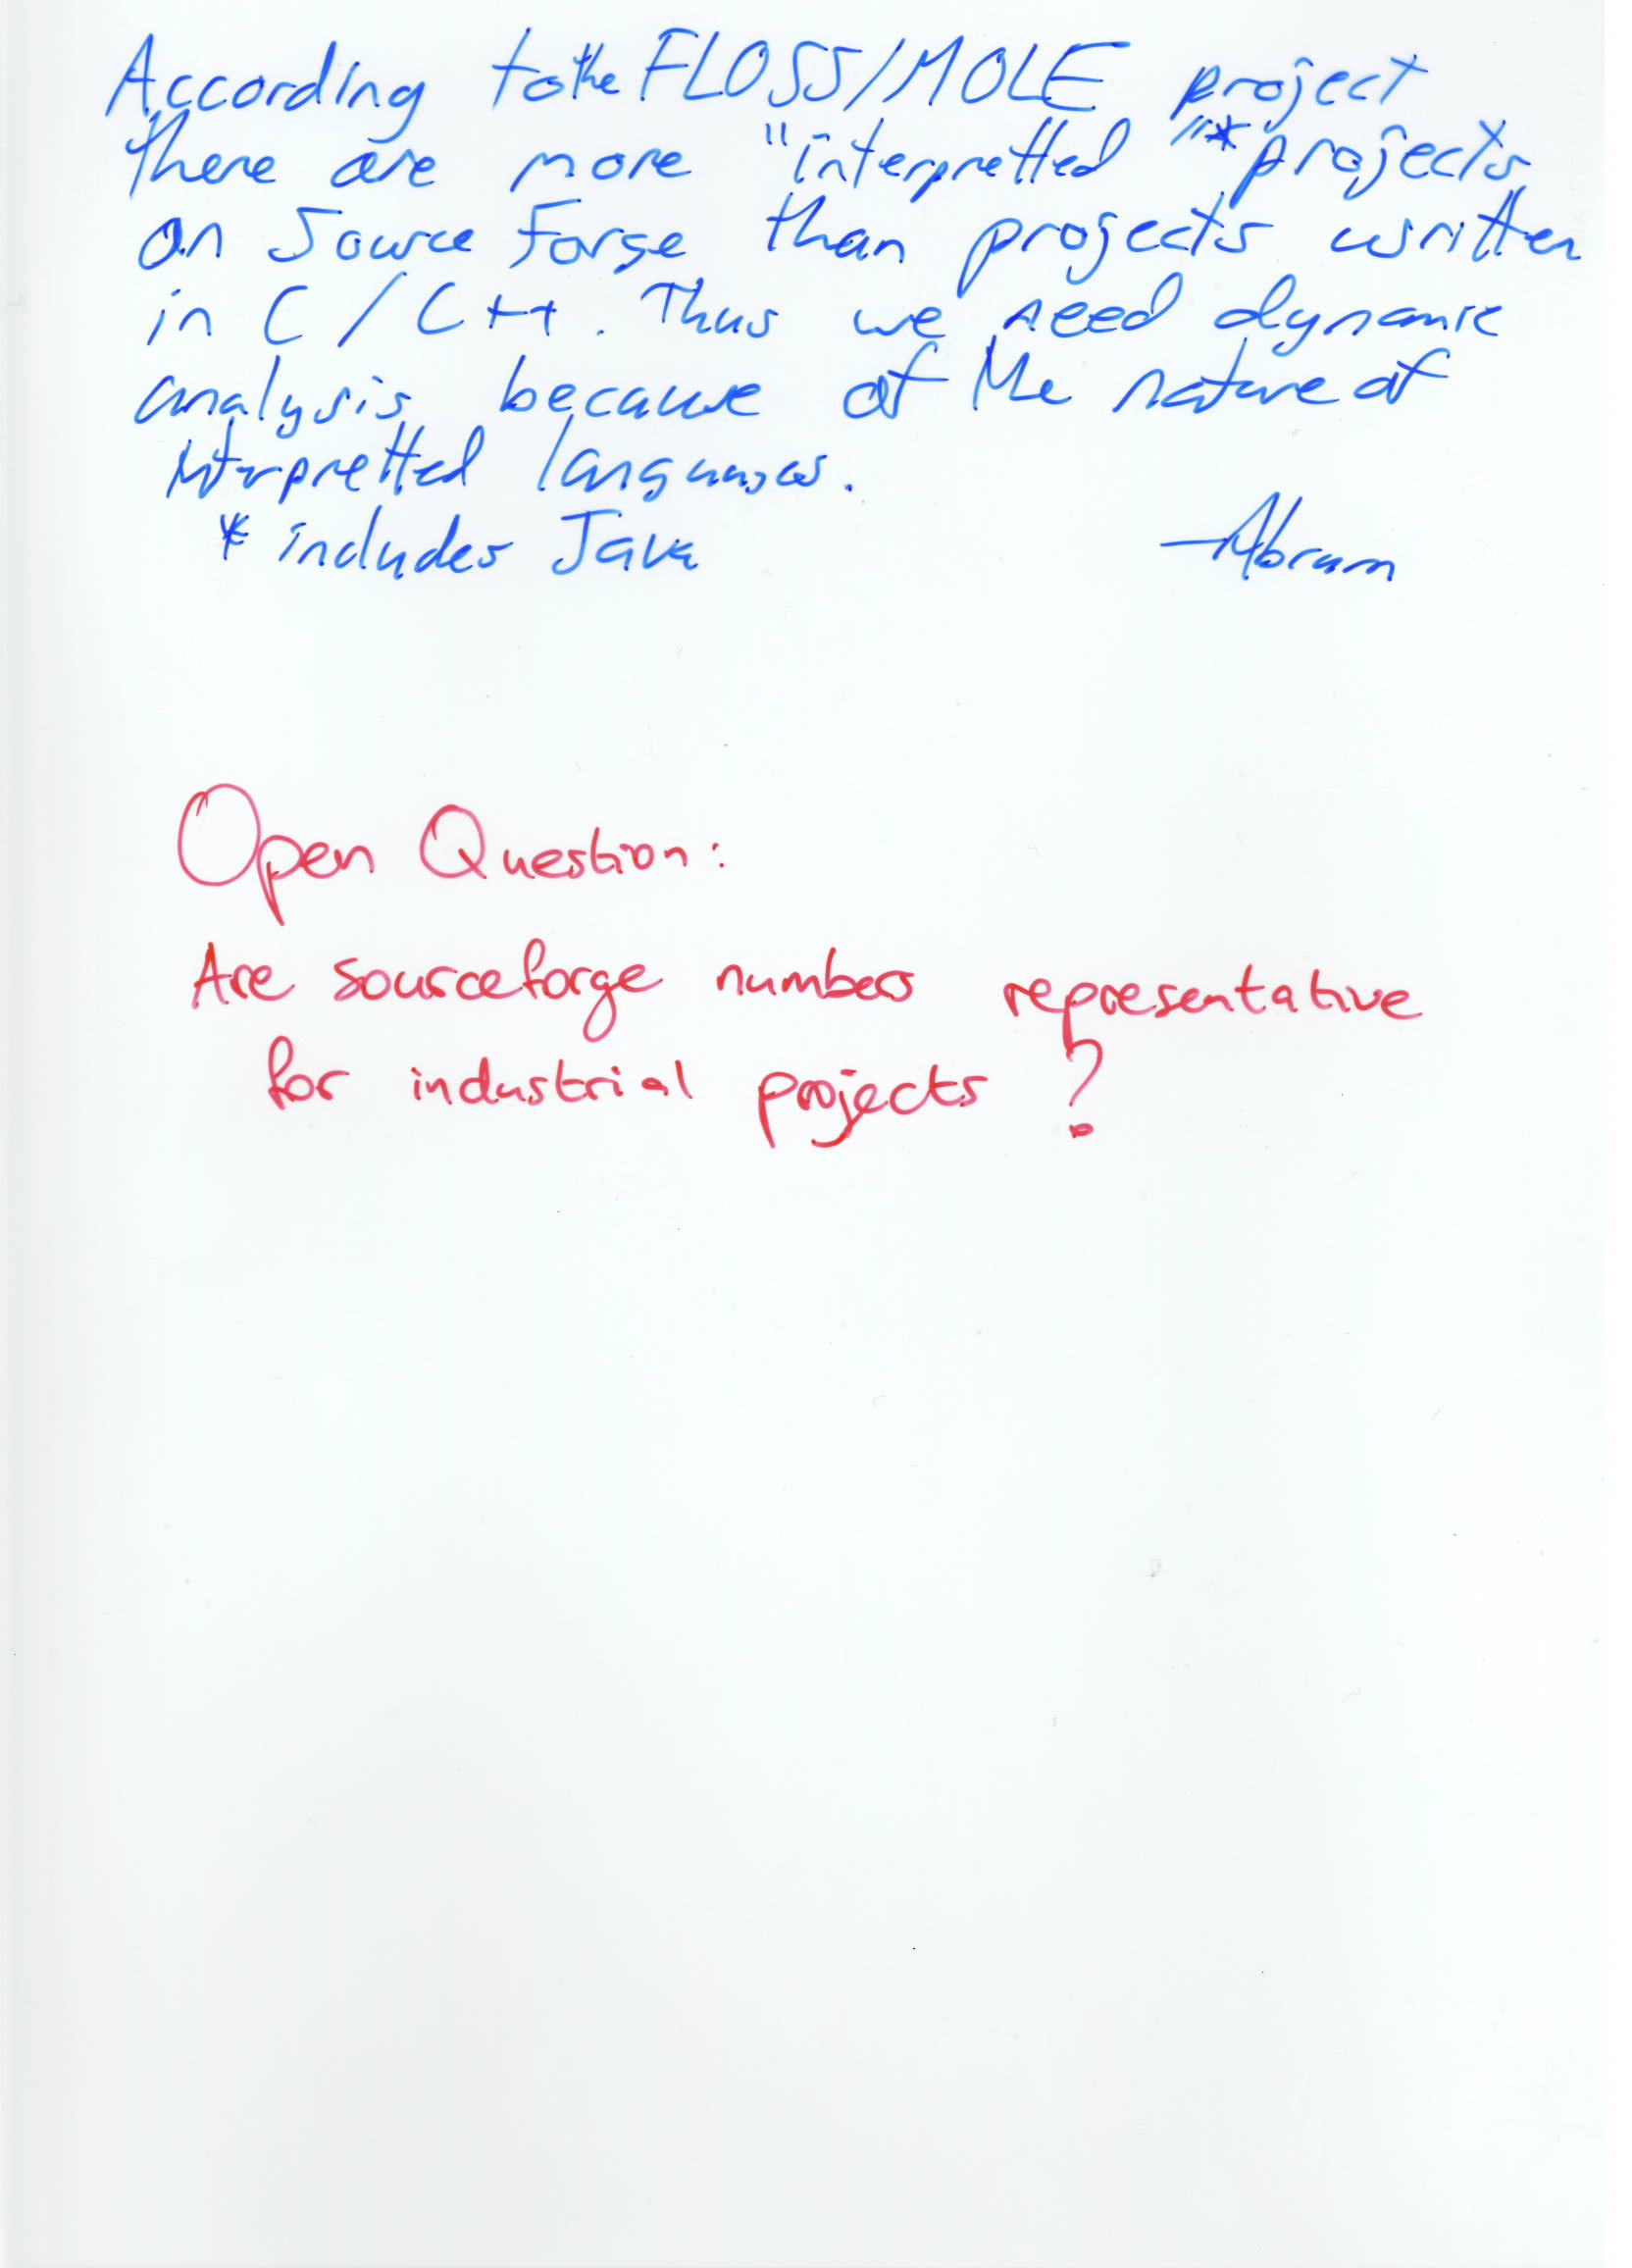 According to the FLOSS/MOLE project
there are more "interpretted"* projects
on Source Forge than projects written
in C / C++. Thus we need dynamic
analysis because of the nature of
interpretted languages.
* includes Java
—Abram
Open Question:
Are sourceforge numbers representative
for industrial projects ?